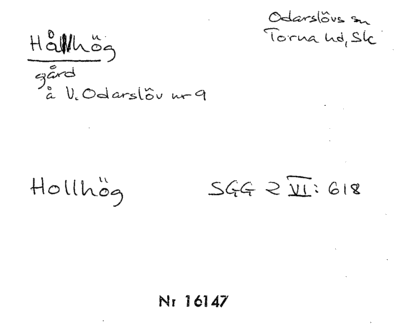 Hållhög
Odarslövs sn
Torna hd, Sk
gård
å V. Odarslöv nr 9
Hollhög
SGG 2 VI: 618
Nr 16147